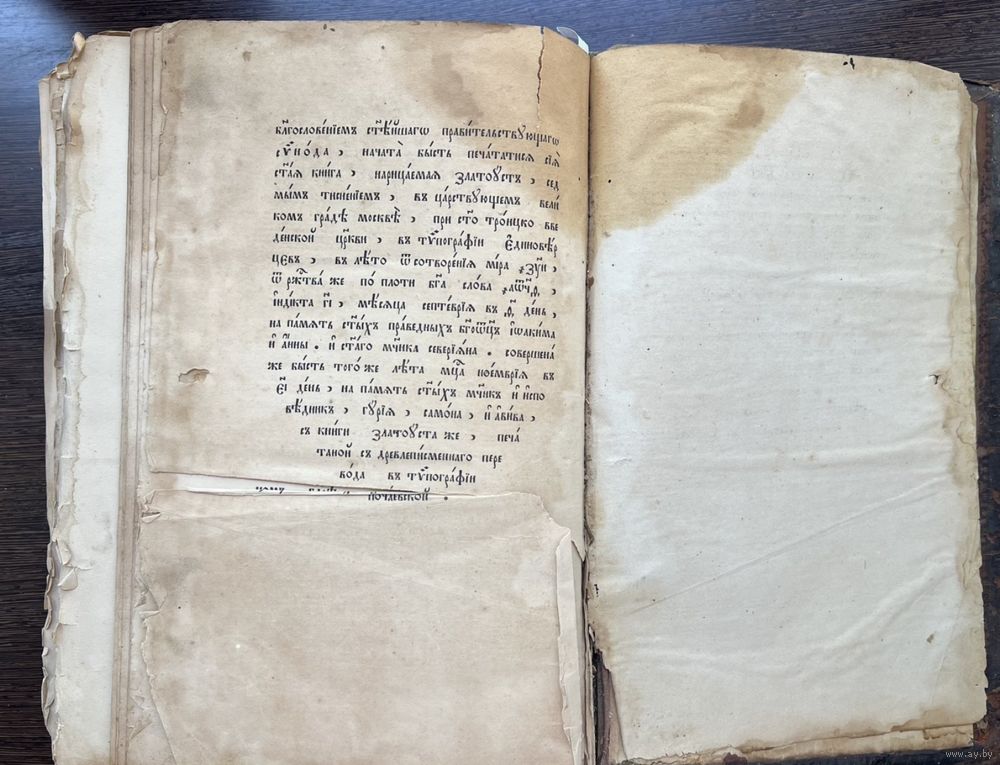 бл҃гословенїемъ ст҃ѣ́йшагѡ прави́тельствꙋющагѡ
сѵ҆но́да , начата̀ бы́сть печа́татися сїѧ̀
ст҃а́ѧ кни́га , нарица́емая златоꙋ́стъ , сед
мы́мъ тисне́нїемъ , въ ца́рствꙋющемъ вели́
комъ гра́дѣ москвѣ̀ , при ст҃о тро́ицко вве
де́нской цр҃кви , въ тѷпогра́фїи є҆диновѣ́р
цевъ , въ лѣ́то ѿ сотворе́нїѧ мі́ра ҂зу҃и ,
ѿ рж҃тва́ же по пло́ти бг҃а сло́ва ҂аѿч҃д ,
і҆ндї́кта гі҃ , мѣ́сѧца септе́врїѧ въ д҃ де́нь ,
на па́мять ст҃ы́хъ пра́ведныхъ бг҃оѻц҃ъ і҆ѡаки́ма
и҆ а҆́нны . и҆ ст҃а́го мч҃ика северїѧ́на . соверше́на
же бы́сть того́ же лѣ́та мц҃а ное́мврїѧ въ
єі҃ де́нь , на па́мѧть ст҃ы́хъ мч҃икъ и҆ и҆спо
вѣ́дникъ , гꙋ́рїѧ , само́на , и҆ а҆ви́ва ,
съ кни́ги златоꙋ́ста же , печа́
таной съ древлепи́сменнаго пере
во́да въ тѷпогра́фїи
поча́евской .
www.ay.by